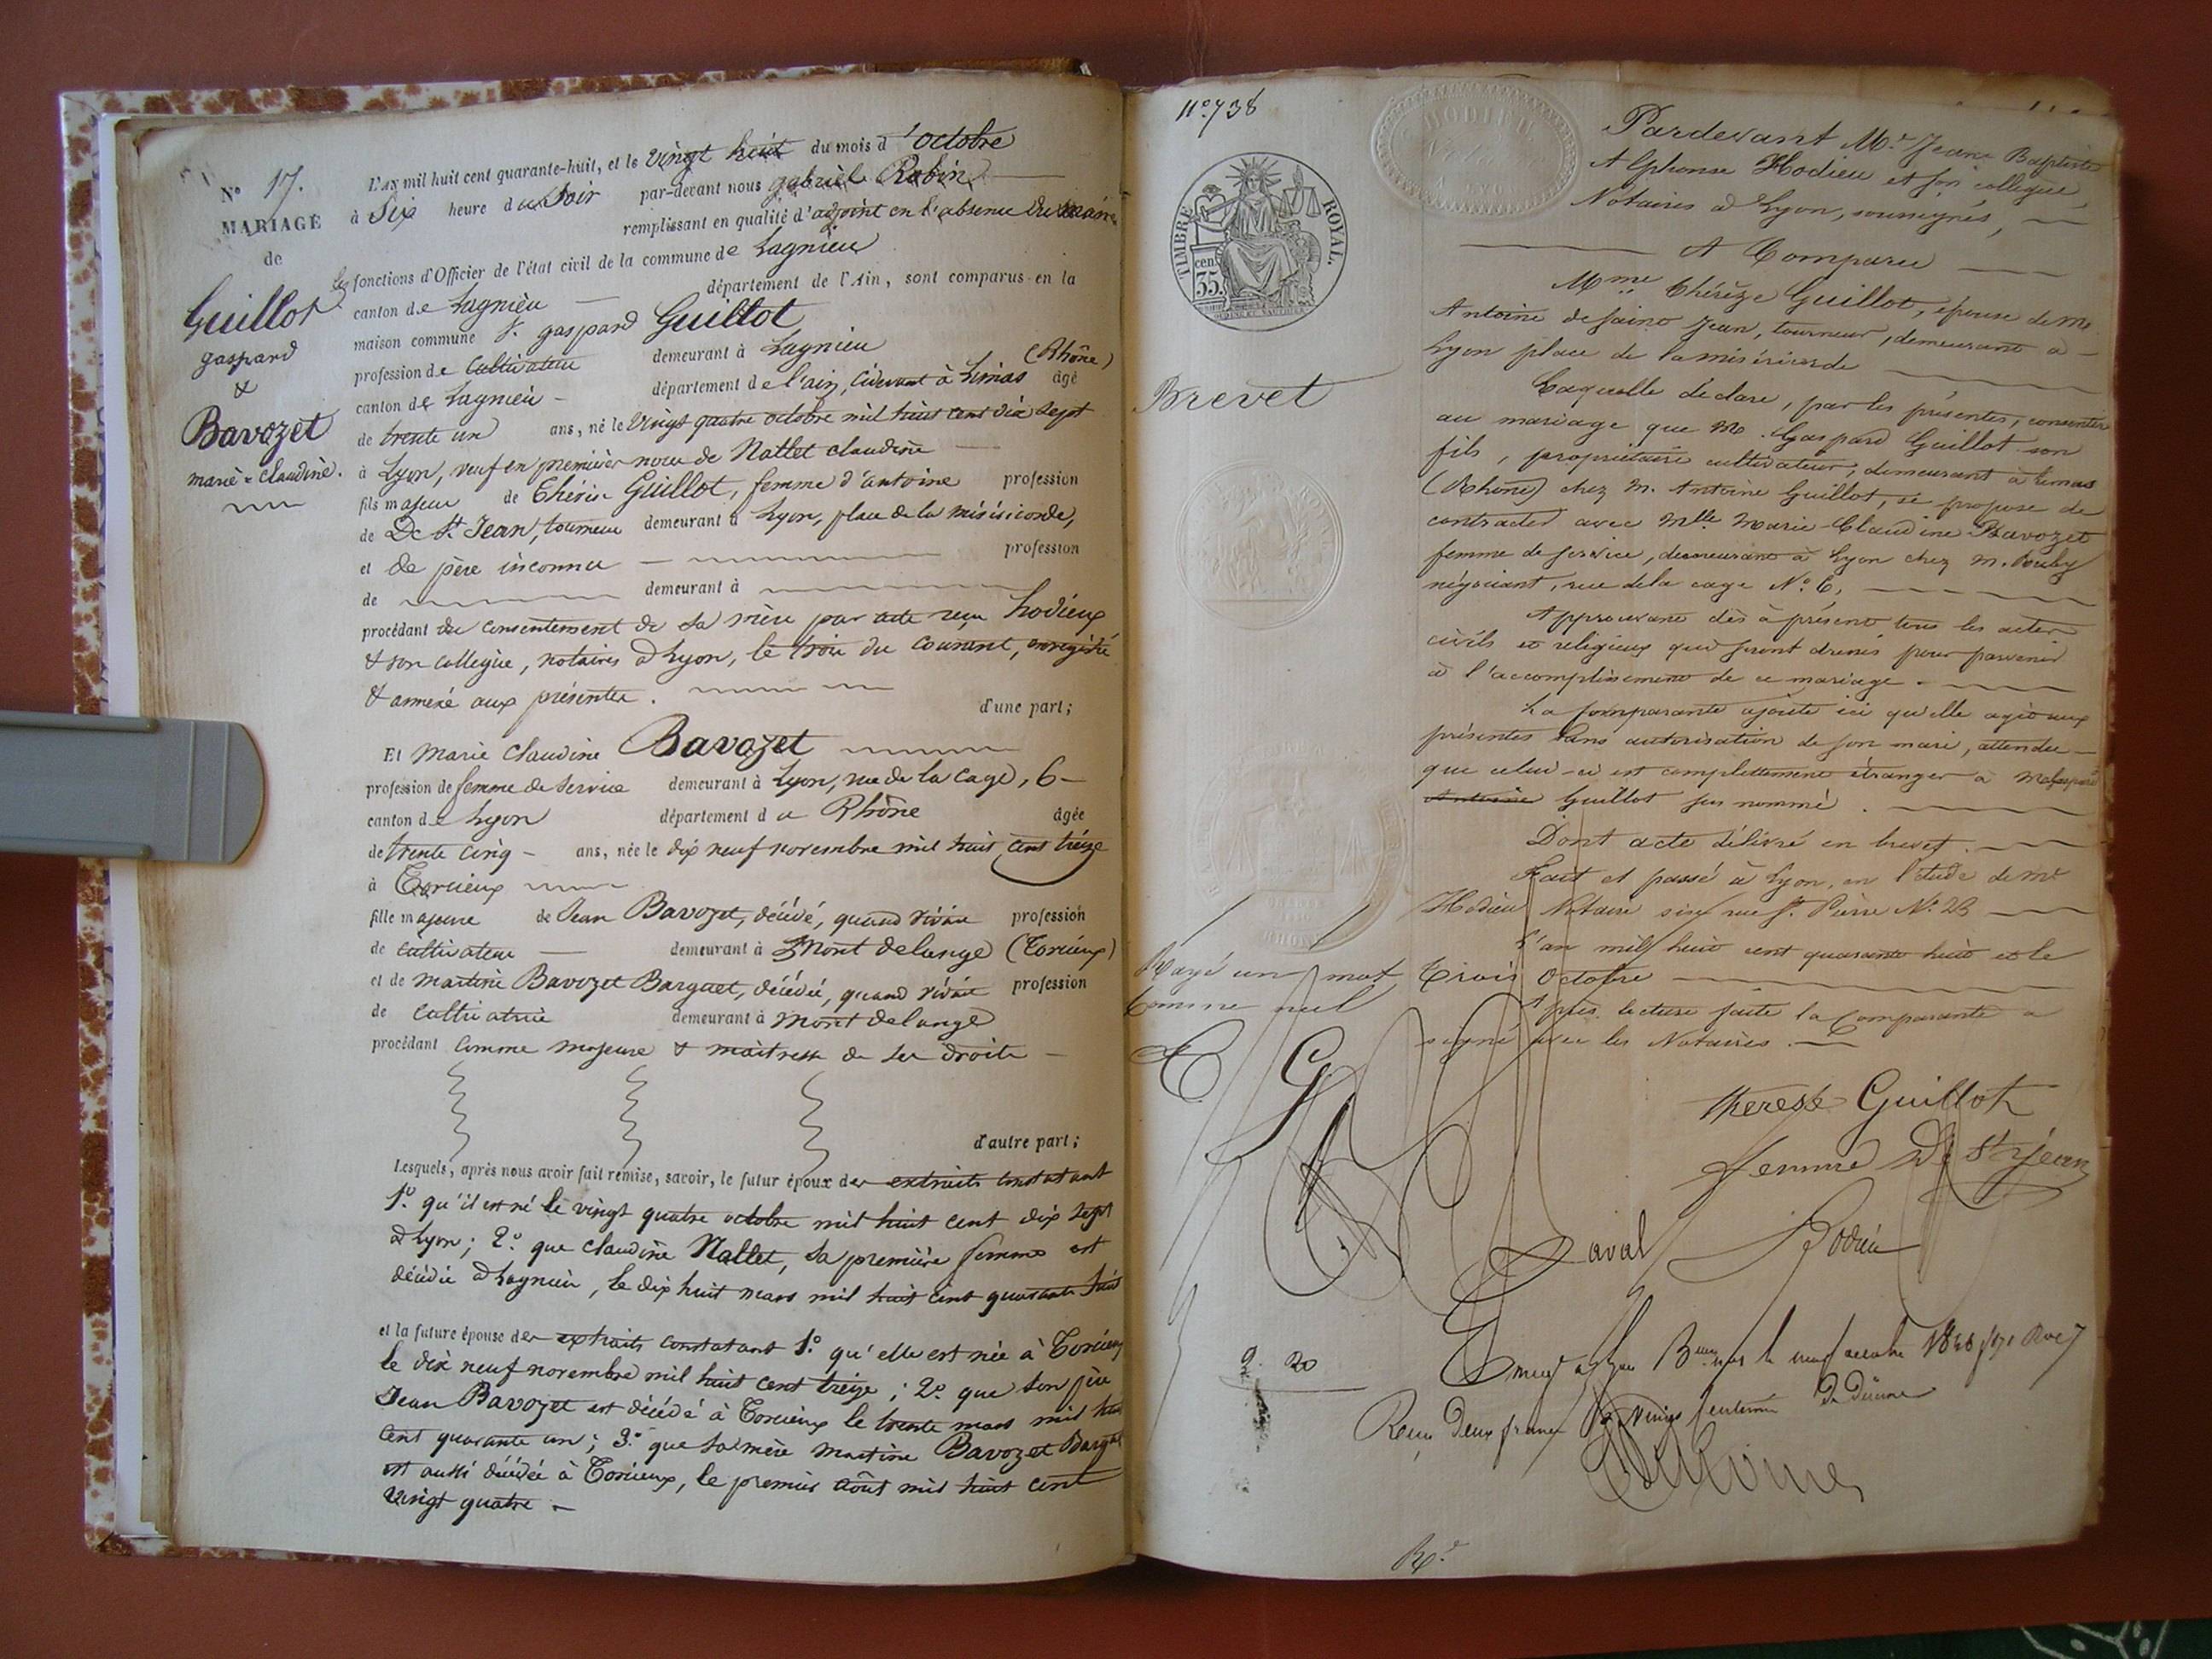 N° 17.
MARIAGE
de
Guillot
gaspard
&
Bavozet
marie=claudine.
L'an mil huit cent quarante-huit, et le vingt huit du mois d'octobre
à Six heure du Soir par-devant nous gabriel Robin
remplissant en qualité d'adjoint en l'absence du maire
les fonctions d'Officier de l'état civil de la commune de Lagnieu
canton de Lagnieu département de l'Ain, sont comparus en la
maison commune S. gaspard Guillot
profession de cultivateur demeurant à Lagnieu
canton de Lagnieu - département de l'ain, cidevant à Limas (Rhône) âgé
de trente un ans, né le vingt quatre octobre mil huit cent dix sept
à Lyon, veuf en premières noces de Nallet claudine
fils majeur de Thérèse Guillot, femme d'antoine profession
de De St. Jean, tourneur demeurant à Lyon, place de la miséricorde,
et de père inconnu profession
de demeurant à
procédant du consentement de sa mère par acte reçu hodieux
& son collegue, notaires à Lyon, le trois du courant, enregistré
& annexé aux présentes.
d'une part;
Et Marie Claudine Bavozet
profession de femme de service demeurant à Lyon, rue de la Cage, 6 -
canton de Lyon département du Rhône âgée
de trente cinq - ans, née le dix neuf novembre mil huit cent treize
à Torcieux
fille majeure de Jean Bavozet, décédé, quand vivait profession
de cultivateur demeurant à Mont delange (Torcieux)
et de martine Bavozet Barguet, décédée, quand vivait profession
de cultivatrice demeurant à Mont delange
procédant comme majeure & maitresse de ses droits -
d'autre part;
Lesquels, après nous avoir fait remise, savoir, le futur époux des extraits constatant
1° qu'il est né le vingt quatre octobre mil huit cent dix sept
à Lyon; 2° que claudine Nallet, sa première femme est
décédée à Lagnieu, le dix huit mars mil huit cent quarante huit
et la future épouse des extraits constatant 1° qu'elle est née à Torcieux
le dix neuf novembre mil huit cent treize; 2° que son père
Jean Bavozet est décédé à Torcieux le trente mars mil huit
cent quarante un; 3° que sa mère martine Bavozet Barguet
est aussi décédée à Torcieux, le premier août mil huit cent
vingt quatre -
N° 738
HODIEU
TIMBRE ROYAL.
cen
35.
Brevet
Pardevant Me Jean Baptiste
Alphonse Hodieu et son collègue
Notaires à Lyon, soussignés,
A Comparu
Mme Thérèze Guillot, épouse de Mr
Antoine de Saint Jean, tourneur, demeurant à -
Lyon place de la miséricorde
Laquelle déclare, par les présentes, consentir
au mariage que M. Gaspard Guillot son
fils, propriétaire cultivateur, demeurant à Limas
(Rhône) chez M. Antoine Guillot, se propose de
contracter avec Mlle Marie Claudine Bavozet
femme de service, demeurant à Lyon chez M. Pouly
négociant, rue de la cage N° 6,
Approuvant dès à présent tous les actes
civils et religieux qui seront dressés pour parvenir
à l'accomplissement de ce mariage.
La Comparante ajoute ici qu'elle agit aux
présentes sans autorisation de son mari, attendu
que celui-ci est complettement étranger à M Gaspard
Antoine Guillot sus nommé.
Dont acte délivré en brevet.
Fait et passé à Lyon, en l'étude de Me
Hodieu Notaire sise rue St. Pierre N° 23
L'an mil huit cent quarante huit et le
Trois Octobre
Après lecture faite la Comparante a
signé avec les Notaires.
Rayé un mot
Comme nul
T. G
therese Guillot
femme De St jean
Laval Hodieu
2. 20
Reçu deux francs vingt centimes